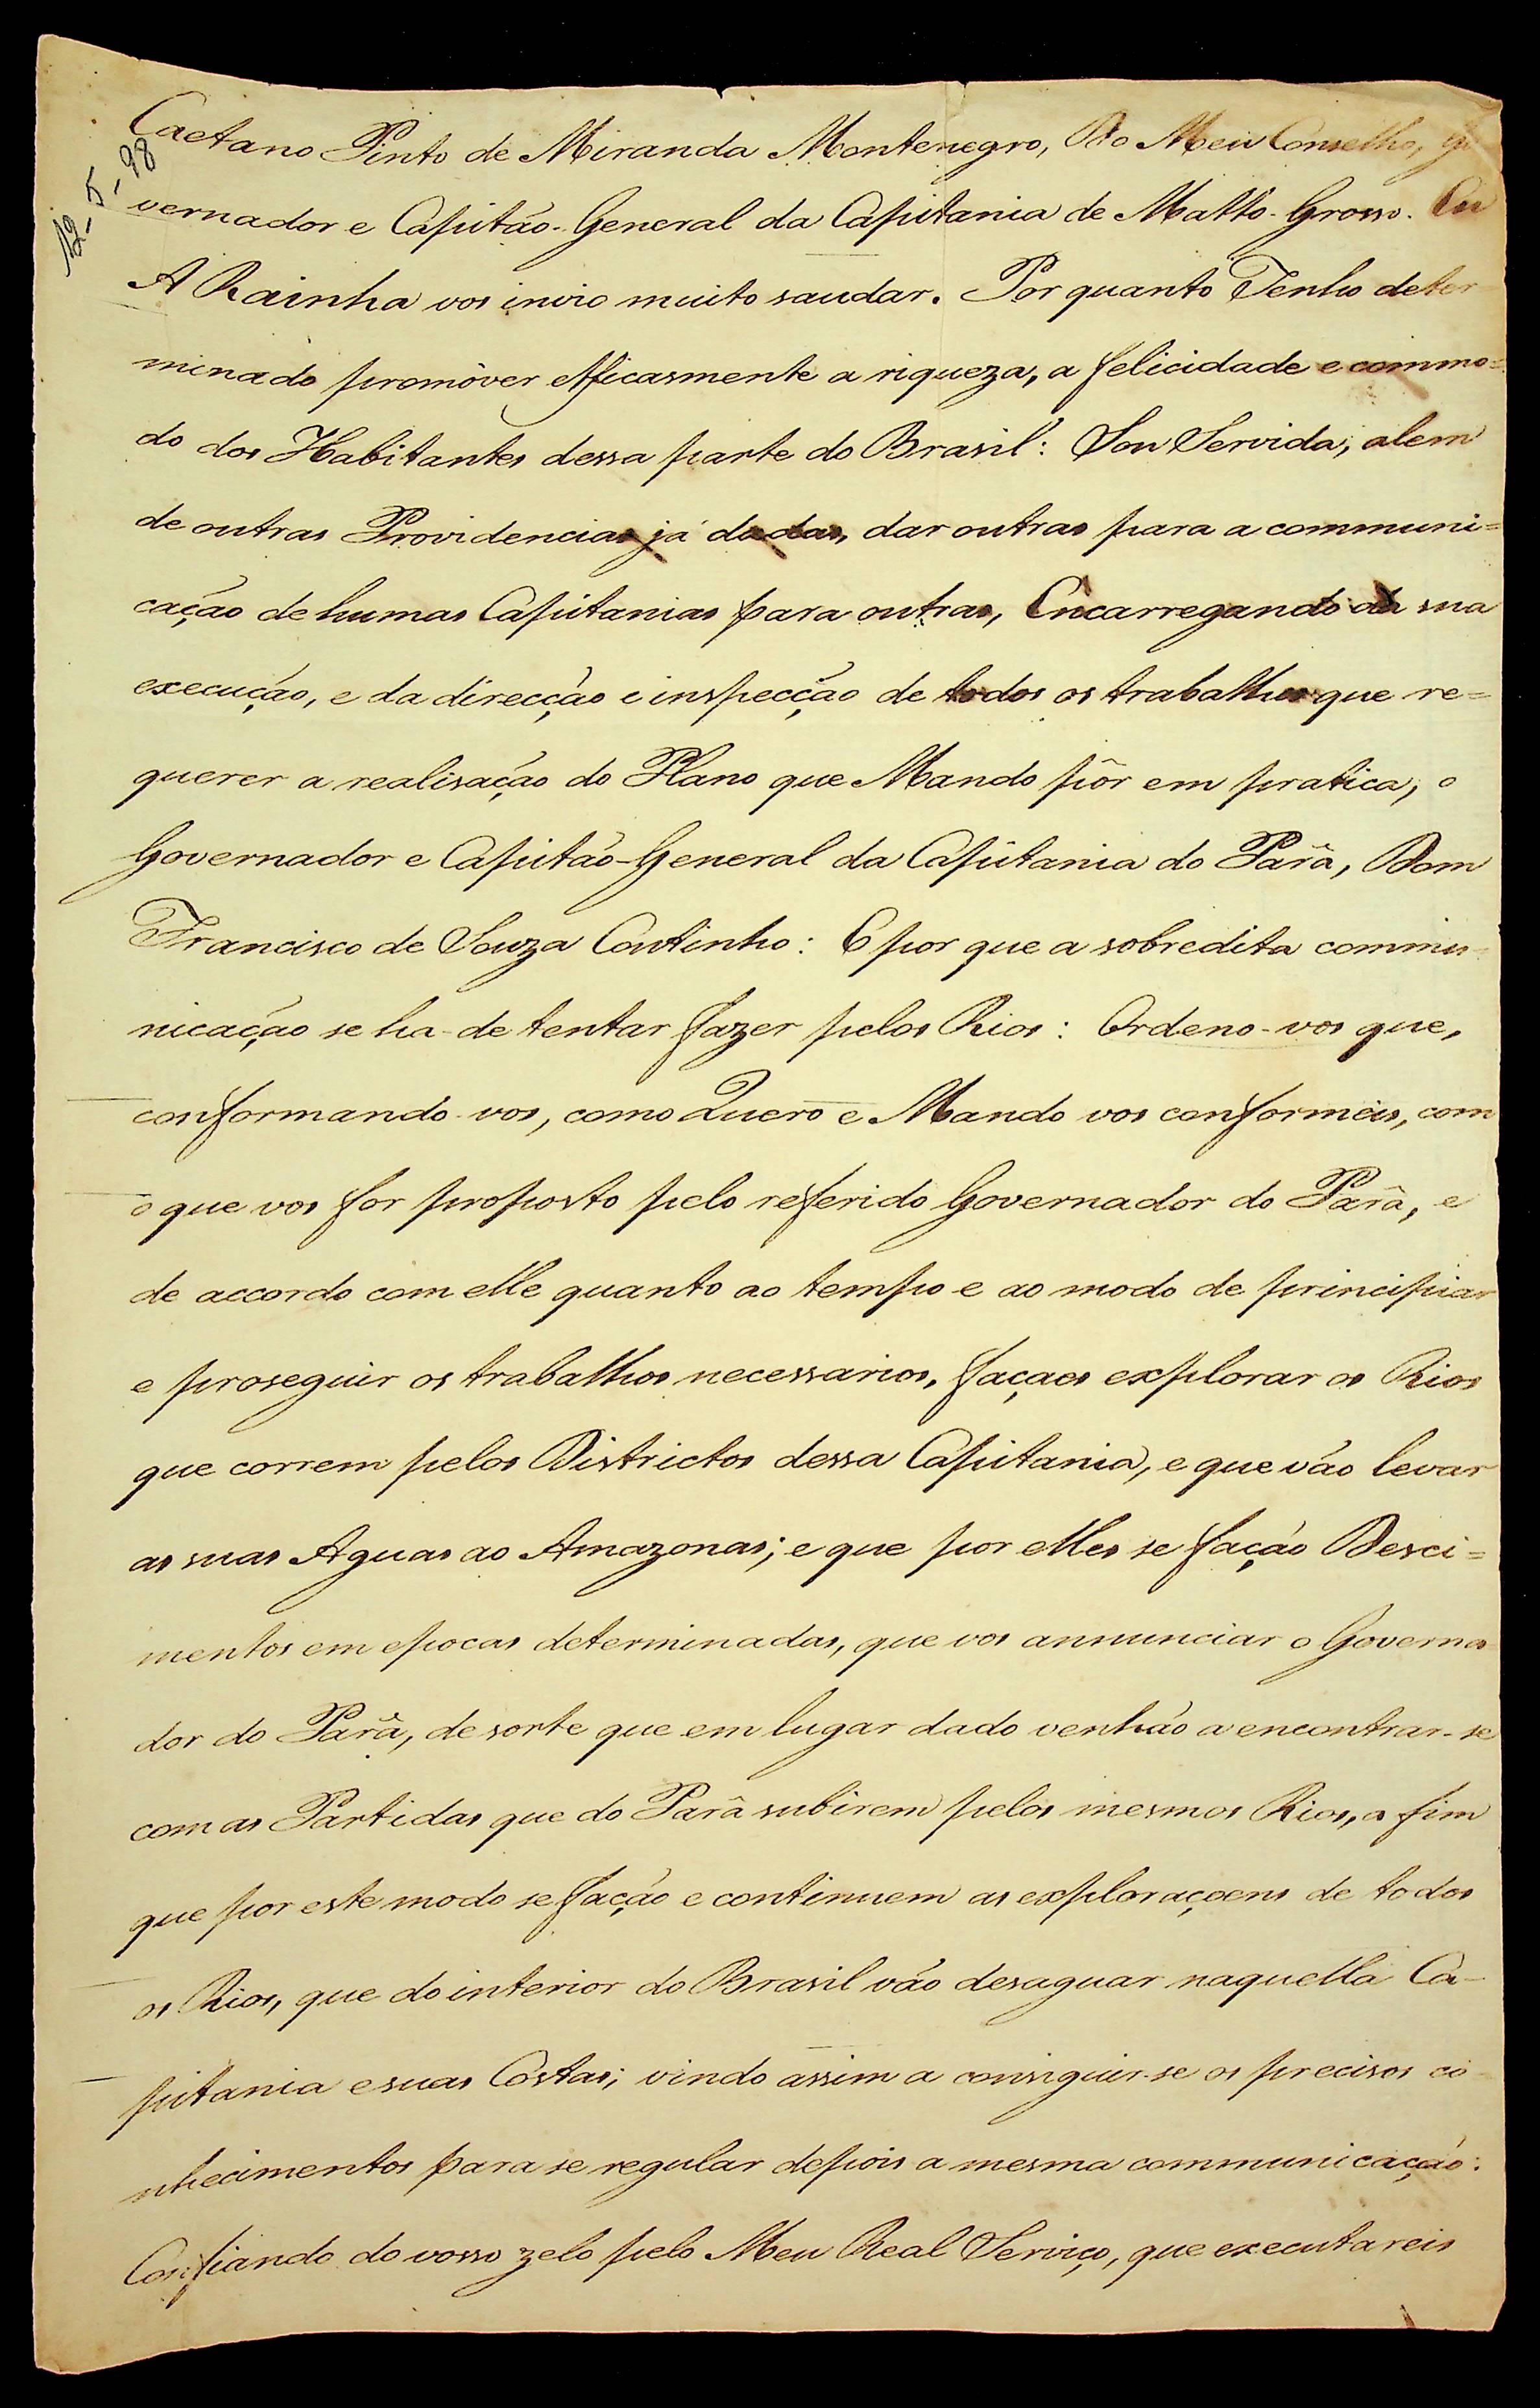 12-5-98
Caetano Pinto de Miranda Montenegro, Do Meu Conselho, Go
vernador e Capitão-General da Capitania de Matto-Grosso. Eu
A Rainha vos invio muito saudar. Por quanto Tenho deter
minado promôver efficasmente a riqueza, a felicidade e commo=
do dos Habitantes dessa parte do Brasil: Sou Servida, alem
de outras Providencias já dadas, dar outras para a communi=
cação de humas Capitanias para outras, Encarregando da sua
execução, e da direcção e inspecção de todos os trabalhos que re=
querer a realisação do Plano que Mando pôr em pratica, o
Governador e Capitão-General da Capitania do Parâ, Dom
Francisco de Souza Coutinho: E por que a sobredita commu
nicação se ha-de tentar fazer pelos Rios: Ordeno-vos que,
conformando-vos, como Quero e Mando vos conformeis, com
o que vos for proposto pelo referido Governador do Parâ, e
de accordo com elle quanto ao tempo e ao modo de principiar
e proseguir os trabalhos necessarios, façaes explorar os Rios
que correm pelos Districtos dessa Capitania, e que vão levar
as suas Aguas ao Amazonas; e que por elles se fação Desci=
mentos em epocas determinadas, que vos annunciar o Governa
dor do Parâ, de sorte que em lugar dado venhão a encontrar-se
com as Partidas que do Parâ subirem pelos mesmos Rios, a fim
que por este modo se fação e continuem as exploraçoens de todos
os Rios, que do interior do Brasil vão desaguar naquella Ca-
pitania e suas Costas; vindo assim a consiguir-se os precisos co
nhecimentos para se regular depois a mesma communicação.
Confiando do vosso zelo pelo Meu Real Serviço, que executareis